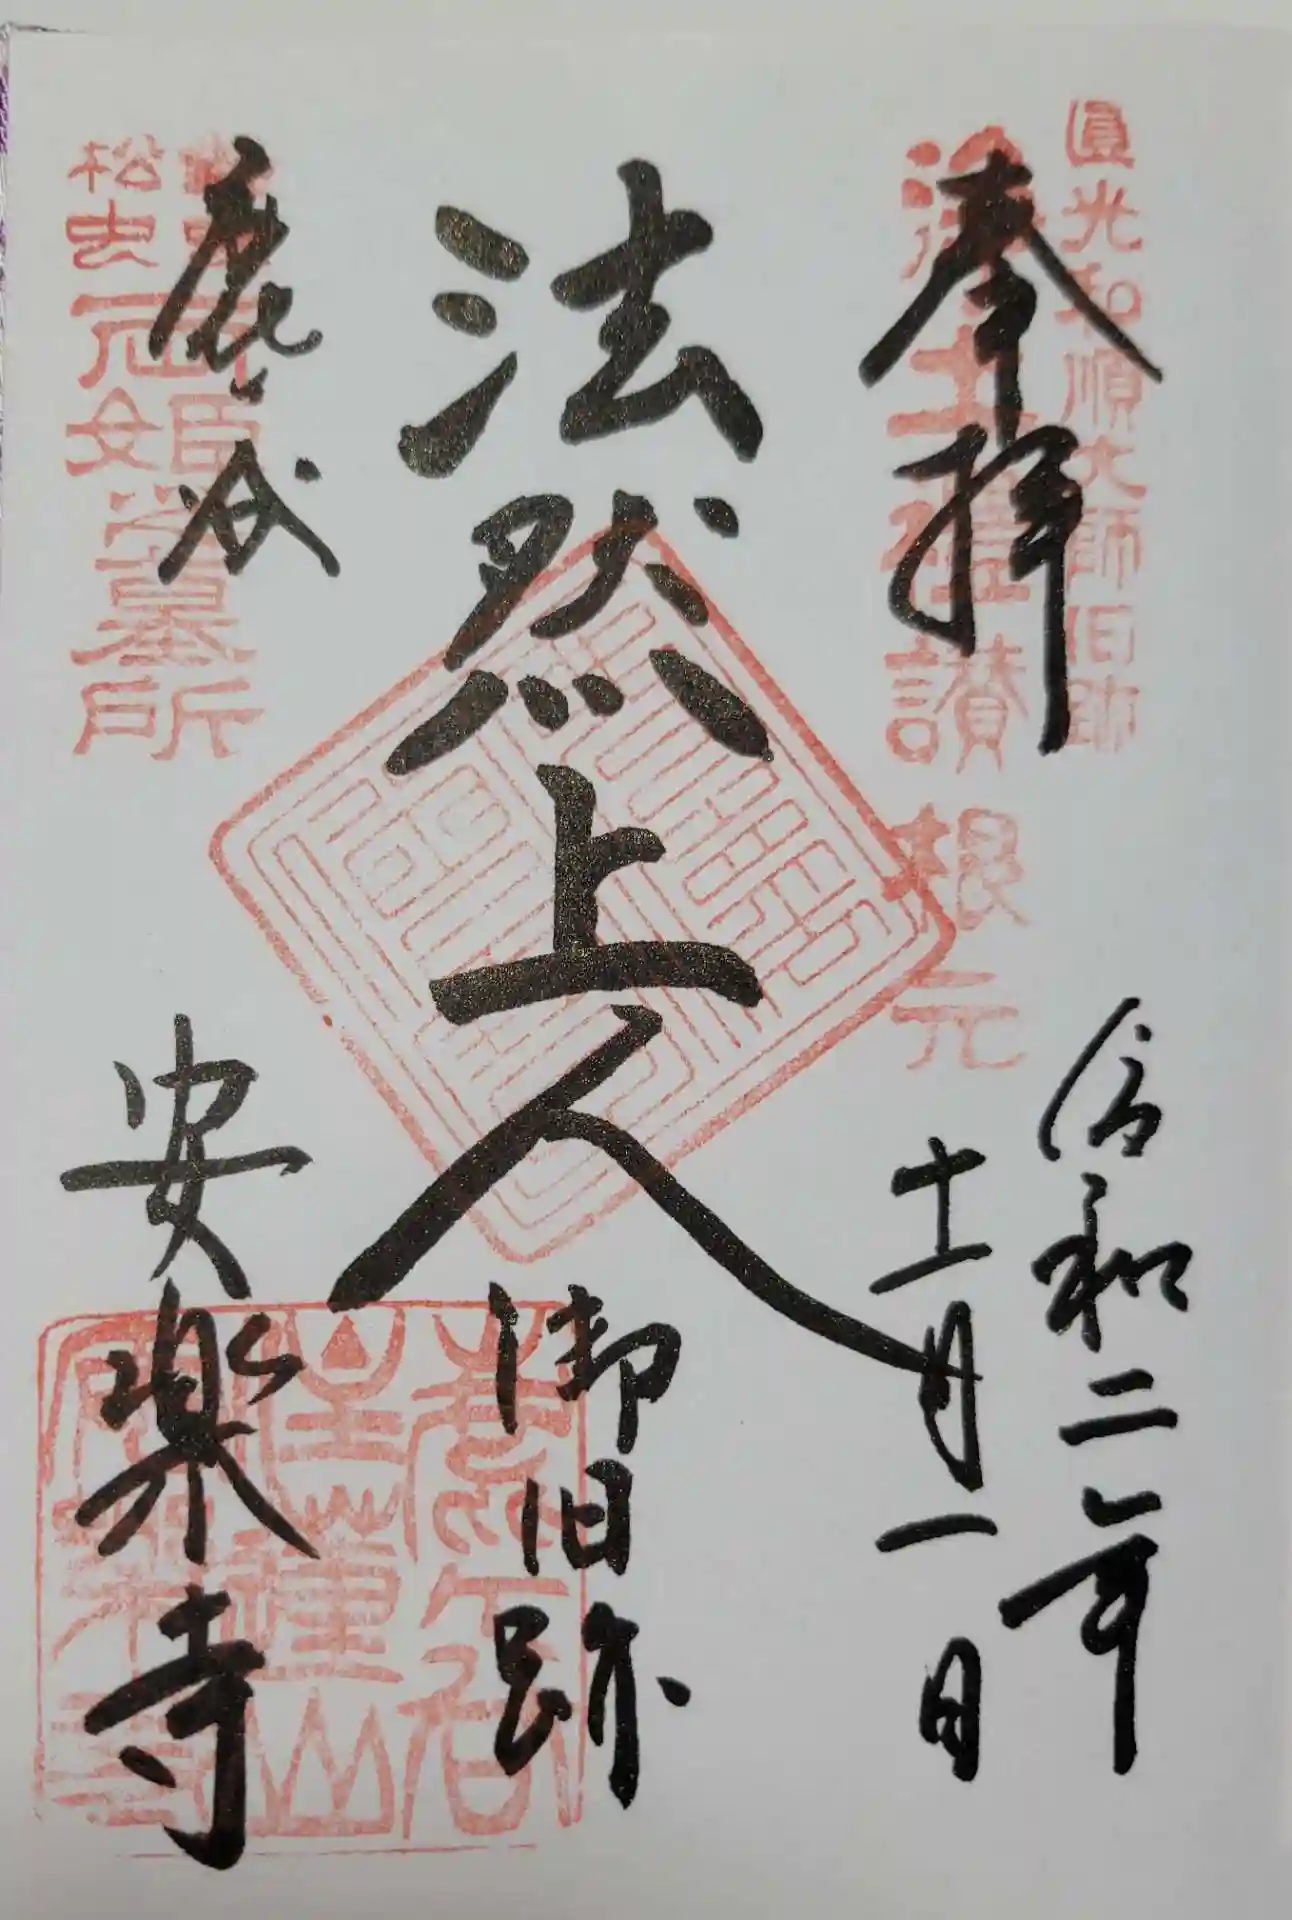 圓光和順大師旧跡
奉拝
浄土禮讃根元
令和二年
十一月一日
法然上人
御旧跡
鹿ヶ谷
松虫
両姫之墓所
安楽寺